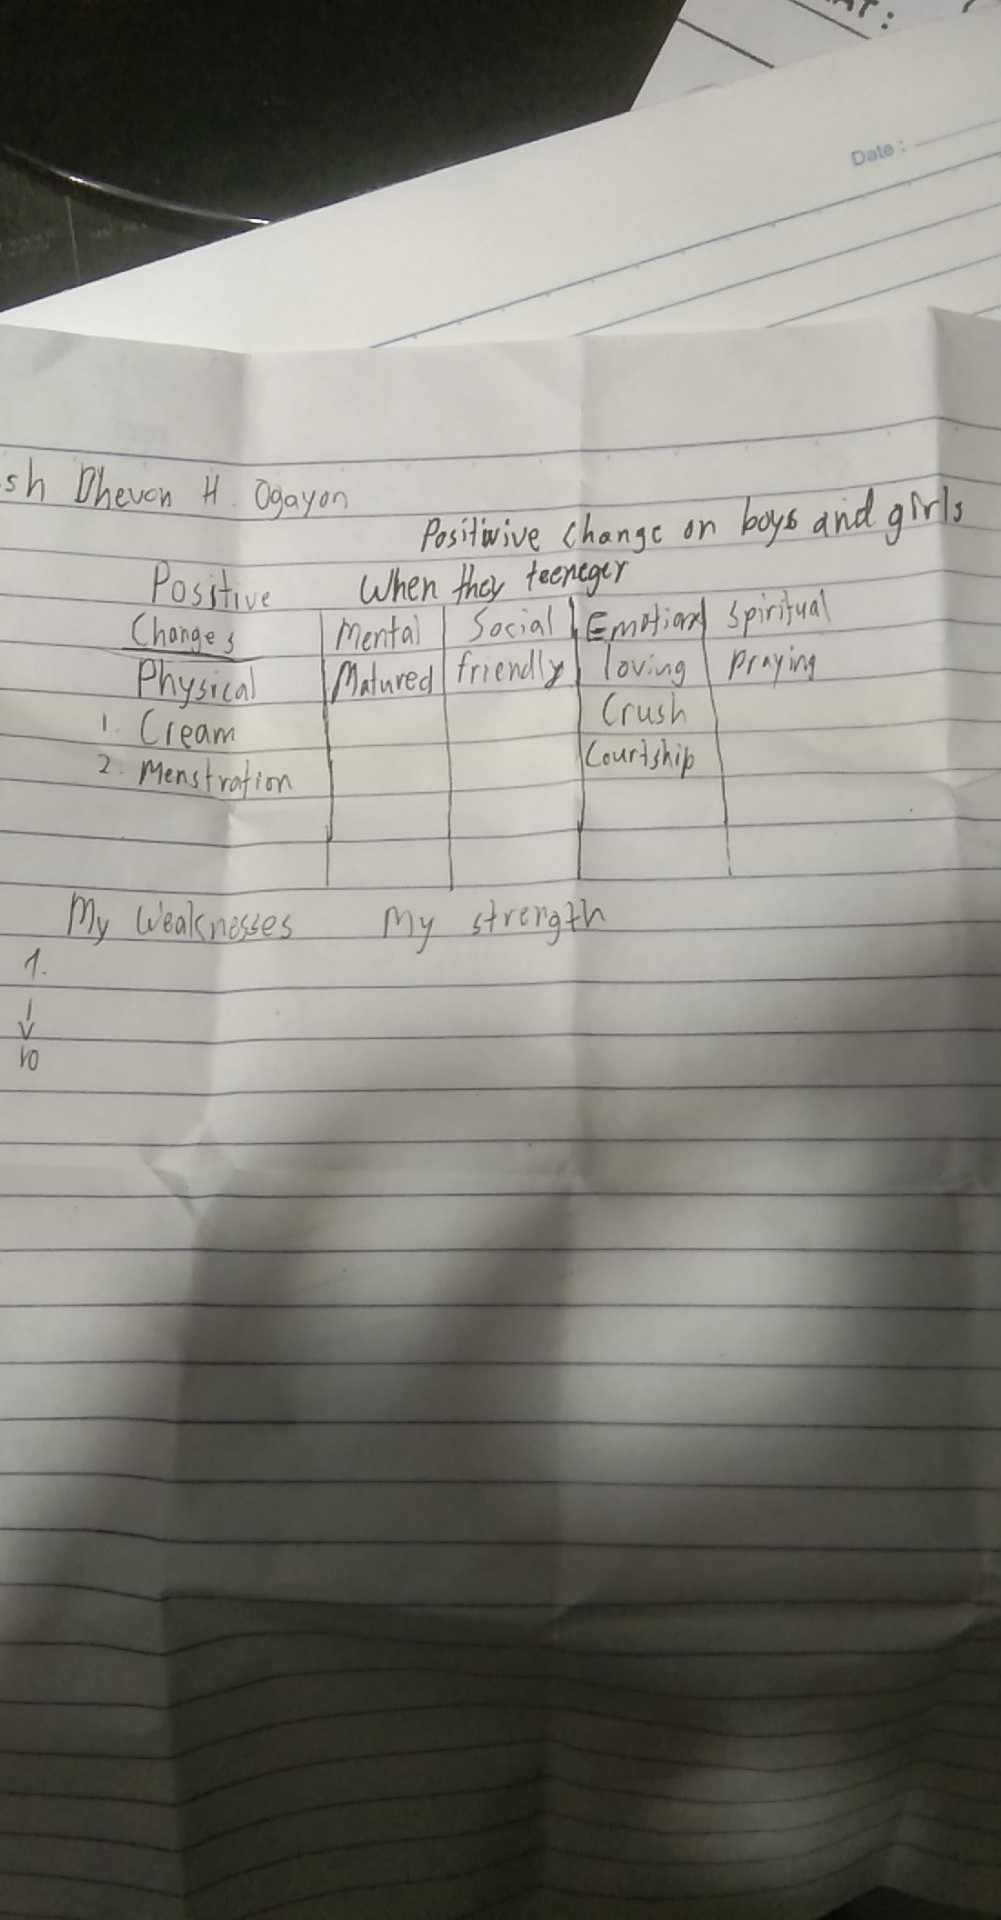 AT:
Date:
sh Dhevon H. Ogayon
Positiwive Change on boys and girls
Positive When they teeneger
Changes Mental Social Emotional Spiritual
Physical Matured friendly loving praying
1. Cream Crush
2. Menstration Courtship
My Weaknesses My strength
1.
10